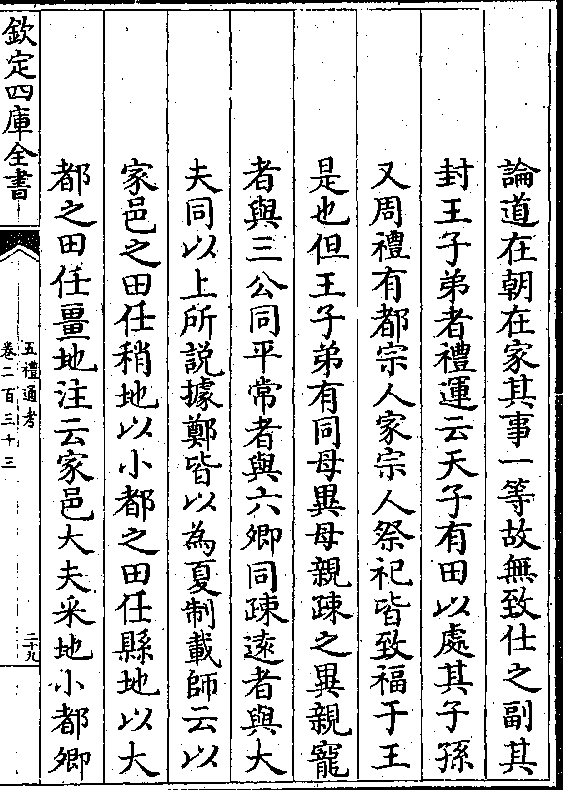 論道在朝在家其事一等故無致仕之副其
封王子弟者禮運云天子有田以處其子孫
又周禮有都宗人家宗人祭祀皆致福于王
是也但王子弟有同母異母親疎之異親寵
者與三公同平常者與六卿同疎遠者與大
夫同以上所説據鄭皆以為夏制載師云以
家邑之田任稍地以小都之田任縣地以大
都之田任畺地注云家邑大夫采地小都卿
欽定四庫全書
五禮通考
卷二百三十三
二十九